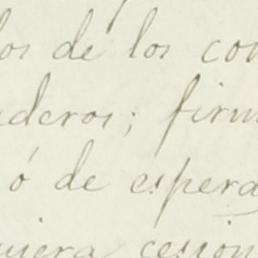 los de los con
aderos; firm
ó de espera
quiera cesion